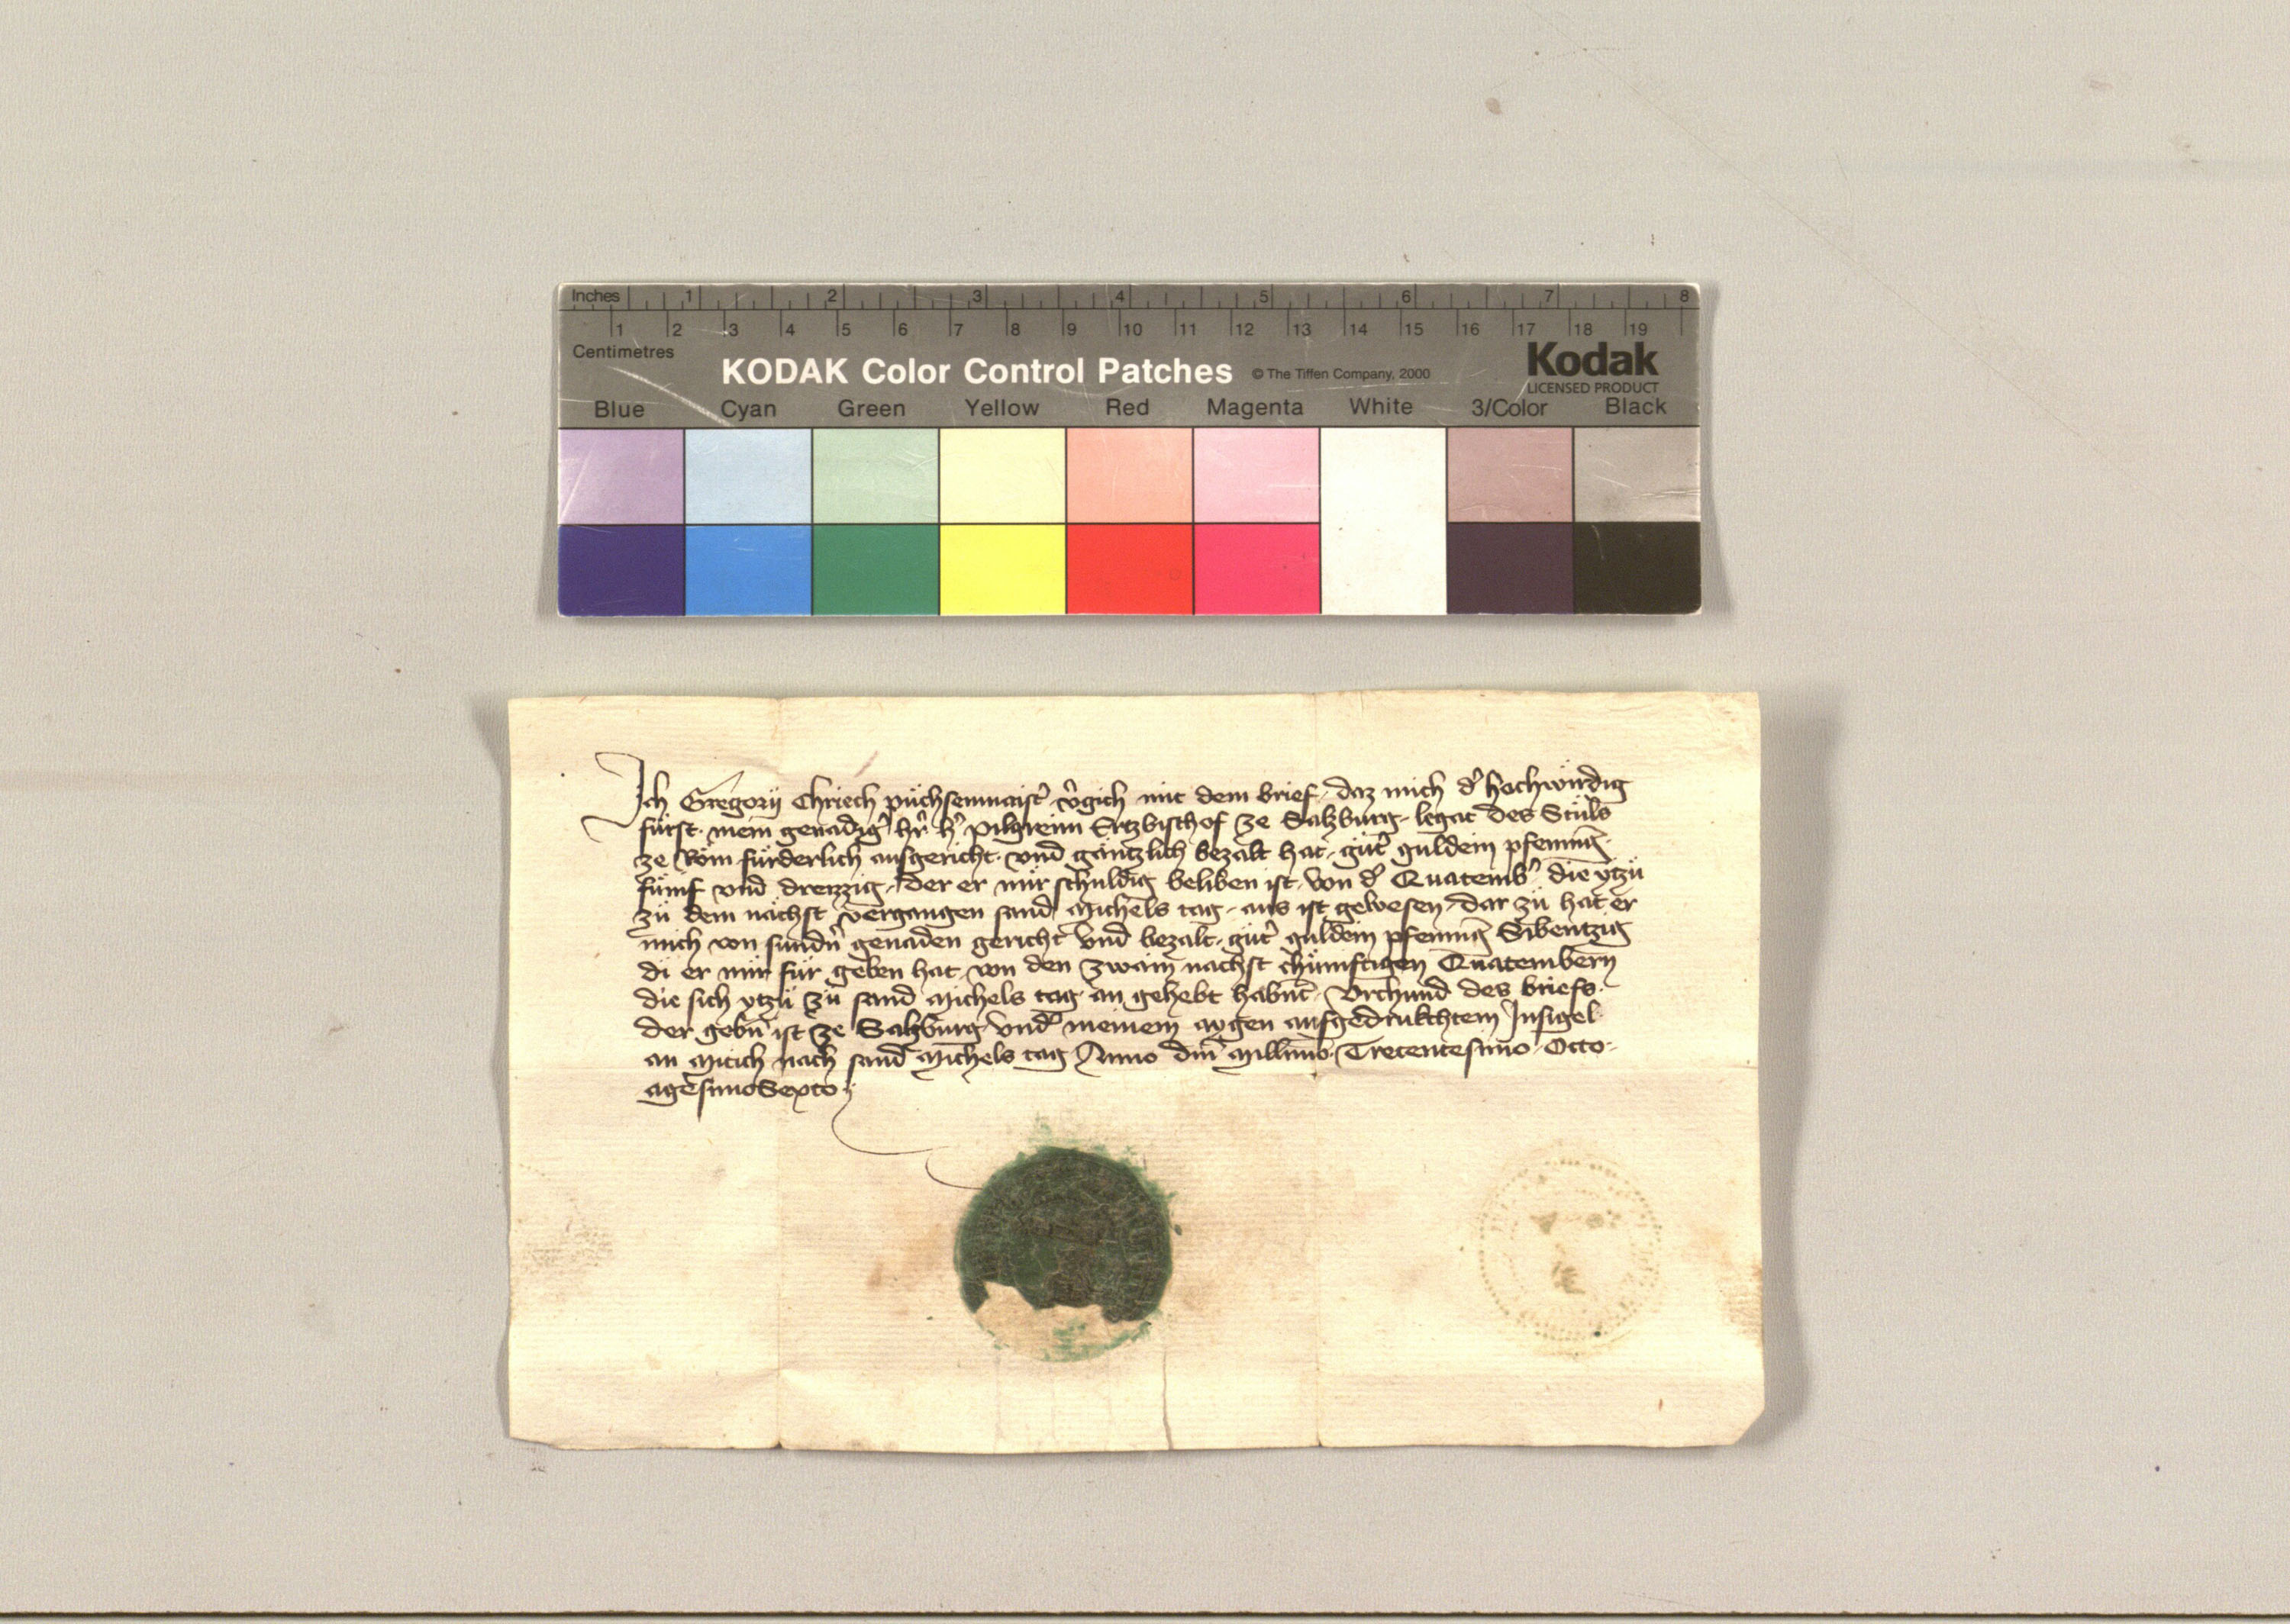 Inches 1 2 3 4 5 6 7 8
1 2 3 4 5 6 7 8 9 10 11 12 13 14 15 16 17 18 19
Centimetres
KODAK Color Control Patches © The Tiffen Company, 2000 Kodak
LICENSED PRODUCT
Blue Cyan Green Yellow Red Magenta White 3/Color Black
Ich Gregorij Chriech püchsenmaist̾ v̾gich mit dem brief, daz mich d̾ hochwirdig
fürst. mein genadig̾ hr̾ h̾ Pilgreim Ertzbischof ze Salzburg, legat des Stüls
ze Rom fürderlich ausgericht. vnd gäntzlich bezalt hat, güt̾ guldein pfenning̾
fümf vnd dreizzig, der er mir schuldig beliben ist, von d̾ Quatemb̾ die ytzü
zü dem nächst vergangen sand Michels tag, aus ist gewesen, dar zü hat er
mich von sundn̾ genaden gericht vnd bezalt, güt̾ guldein pfenning̾ Sibentzig
di er mir für geben hat, von den zwain nächst chümftigen Quatembern
die sich ytzü zü sand Michels tag an gehebt habnt̄. Vrchund des briefs.
der gebn̄ ist ze Salzburg vnd̾ meinem aygen aufgedrukchtem Insigel
an Mitich nach sand Michels tag Anno dn̄i Mill̄mo. Trecentesimo, Octo-
agesimo Sexto